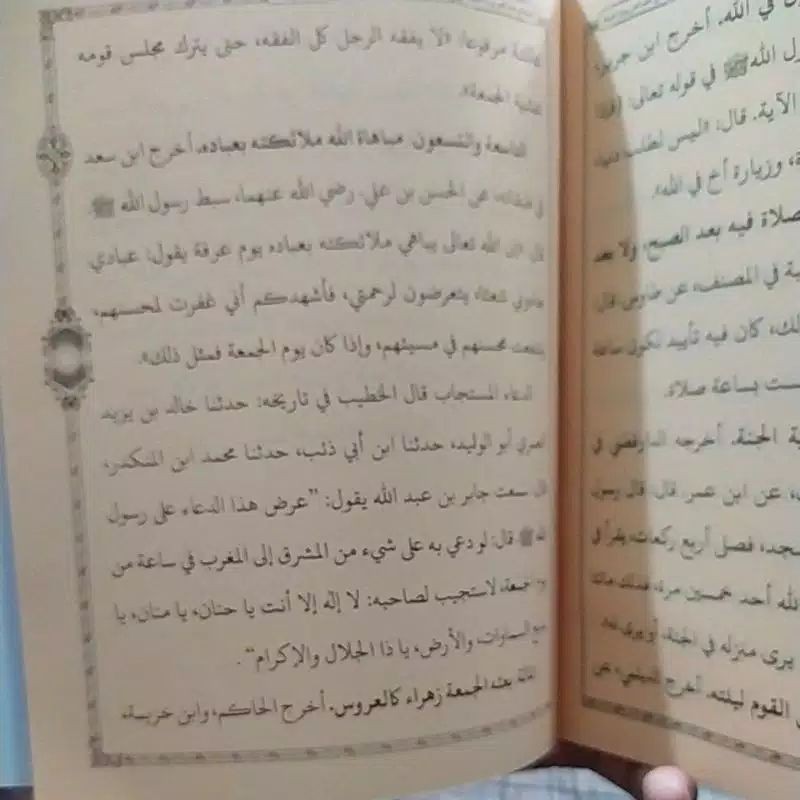 مرفوعا: «لا يفقه الرجل كل الفقه، حتى يترك مجلس قومه
عشية الجمعة».
التاسعة والتسعون. مباهاة الله ملائكته بعباده. أخرج ابن سعد
في طبقاته، عن الحسن بن علي. رضي الله عنهما، سبط رسول الله ﷺ.
قال: «إن الله تعالى يباهي ملائكته بعباده يوم عرفة يقول: عبادي
شعثا، يتعرضون لرحمتي، فأشهدكم أني غفرت لمحسنهم،
محسنهم في مسيئهم، وإذا كان يوم الجمعة فمثل ذلك».
الدعاء المستجاب قال الخطيب في تاريخه: حدثنا خالد بن يزيد
أبو الوليد، حدثنا ابن أبي ذئب، حدثنا محمد ابن المنكدر،
قال سمعت جابر بن عبد الله يقول: "عرض هذا الدعاء على رسول
الله ﷺ قال: لو دعي به على شيء من المشرق إلى المغرب في ساعة من
الجمعة، لاستجيب لصاحبه: لا إله إلا أنت يا حنان، يا منان، يا
السماوات، والأرض، يا ذا الجلال والإكرام".
الجمعة زهراء كالعروس. أخرج الحاكم، وابن خزيمة،
في الله. أخرج ابن جرير،
الله ﷺ في قوله تعالى:
الآية. قال: «ليس لطلب
وزيارة أخ في الله».
صلاة فيه بعد الصبح، ولا بعد
في المصنف، عن طاوس قال
كان فيه تأييد لكون ساعة
ليست بساعة صلاة.
الجنة. أخرجه الدارقطني في
عن ابن عمر قال: قال رسول
فصل أربع ركعات، يقرأ في
الله أحد خمسين مرة، فذلك
يرى منزله في الجنة، أو يرى له.
القوم ليلته. أخرج